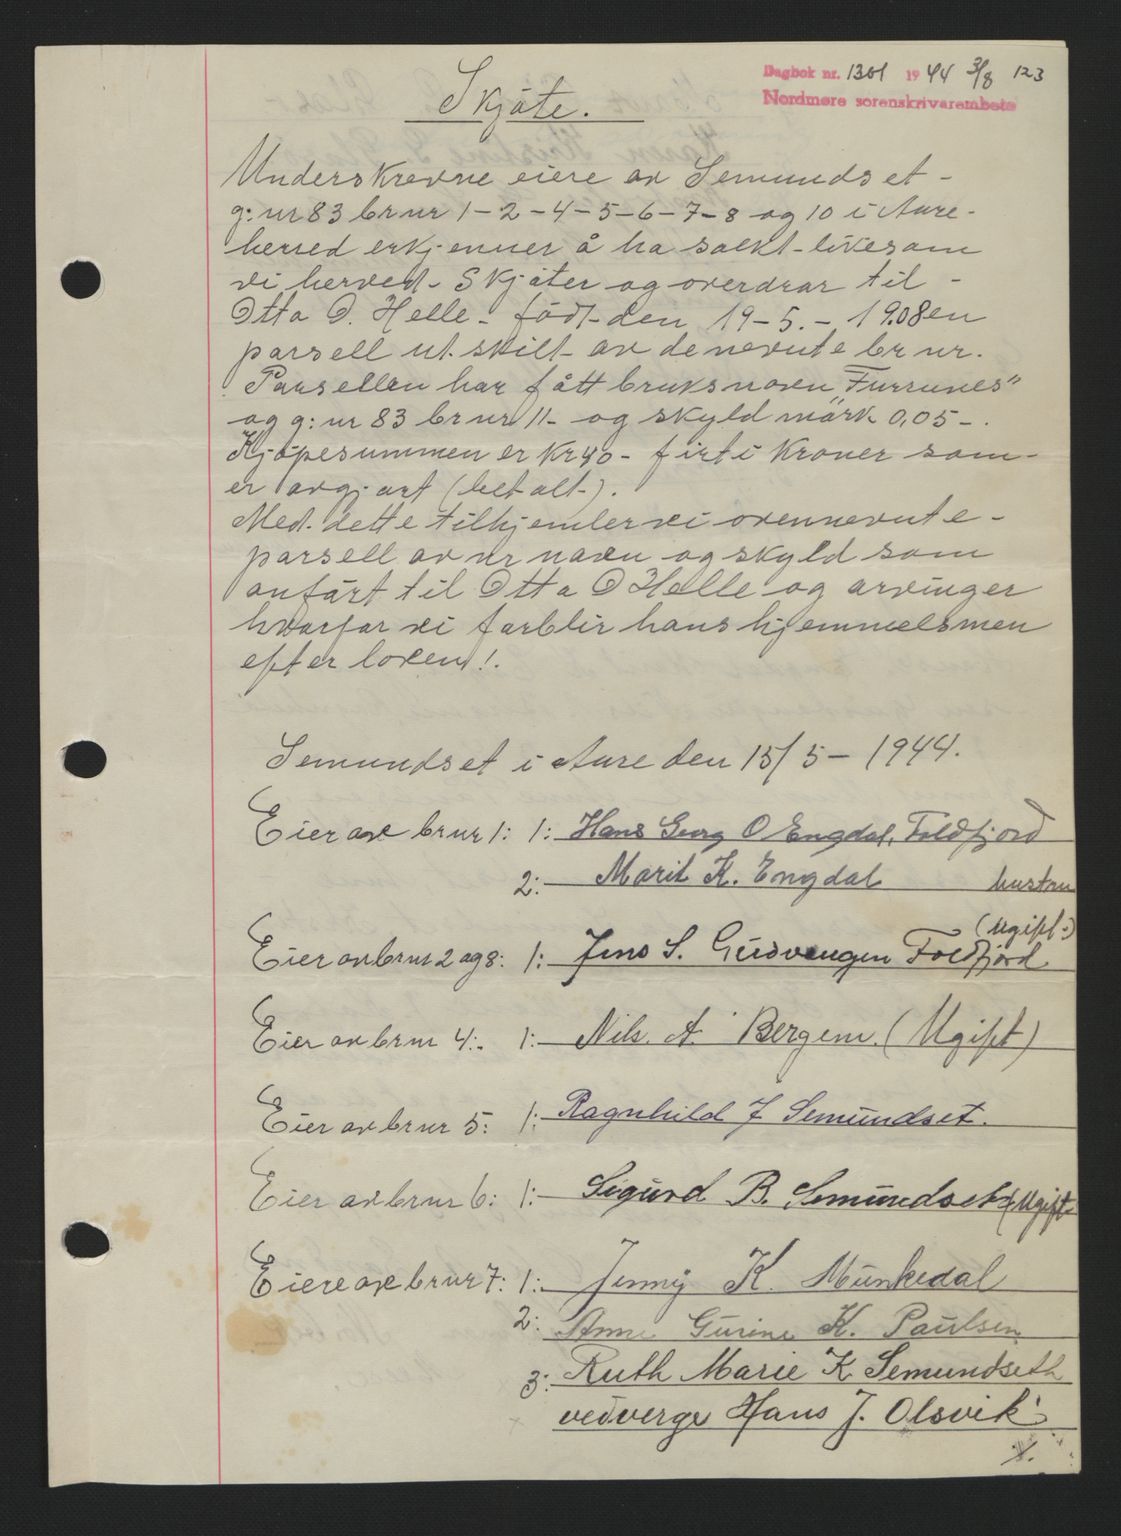 Dagbok nr. 1301 1944 3/8 123
Nordmøre sorenskrivarembete
Skjøte.
Underskrevne eiere av Semundset -
g: nr 83 br nr 1 - 2 - 4 - 5 - 6 - 7 - 8 og 10 i Aure -
herred erkjenner å ha solkt - likesom
vi herved - Skjøter og overdrar til -
Otto O. Helle - født - den 19 - 5. - 1908 en
parsell utskilt - av de nevnte br nr.
Parsellen har fått bruksnavn „Furunes"
og g: nr 83 br nr 11 - og skyld mark 0,05 - .
Kjøpesummen er Kr 40 - firti Kroner som -
er avgjort (betalt -).
Med - dette tilhjemler vi ovennevnte -
parsell av nr navn og skyld som
anført til Otto O Helle og arvinger
hvorfor vi forblir hans hjemmelsmen
efter loven!.
Semundset i Aure den 15/5 - 1944.
Eier av br nr 1: 1: Hans Georg O Engdal, Foldfjord
2: Marit K. Engdal hustru
(Ugift:)
Eier av br nr 2 og 8: 1: Jens S. Gudvangen Foldfjord
Eier av br nr 4: 1: Nils. A. Bergem. (Ugift)
Eier av br nr 5: 1: Ragnhild J Semundset.
Eier av br nr 6: 1: Sigurd B. Semundset (Ugift
Eiere av br nr 7: 1: Jenny K. Munkedal
2: Anne Gurine K. Paulsen
3: Ruth Marie K Semundseth
ved verge Hans J. Olsvik
./.